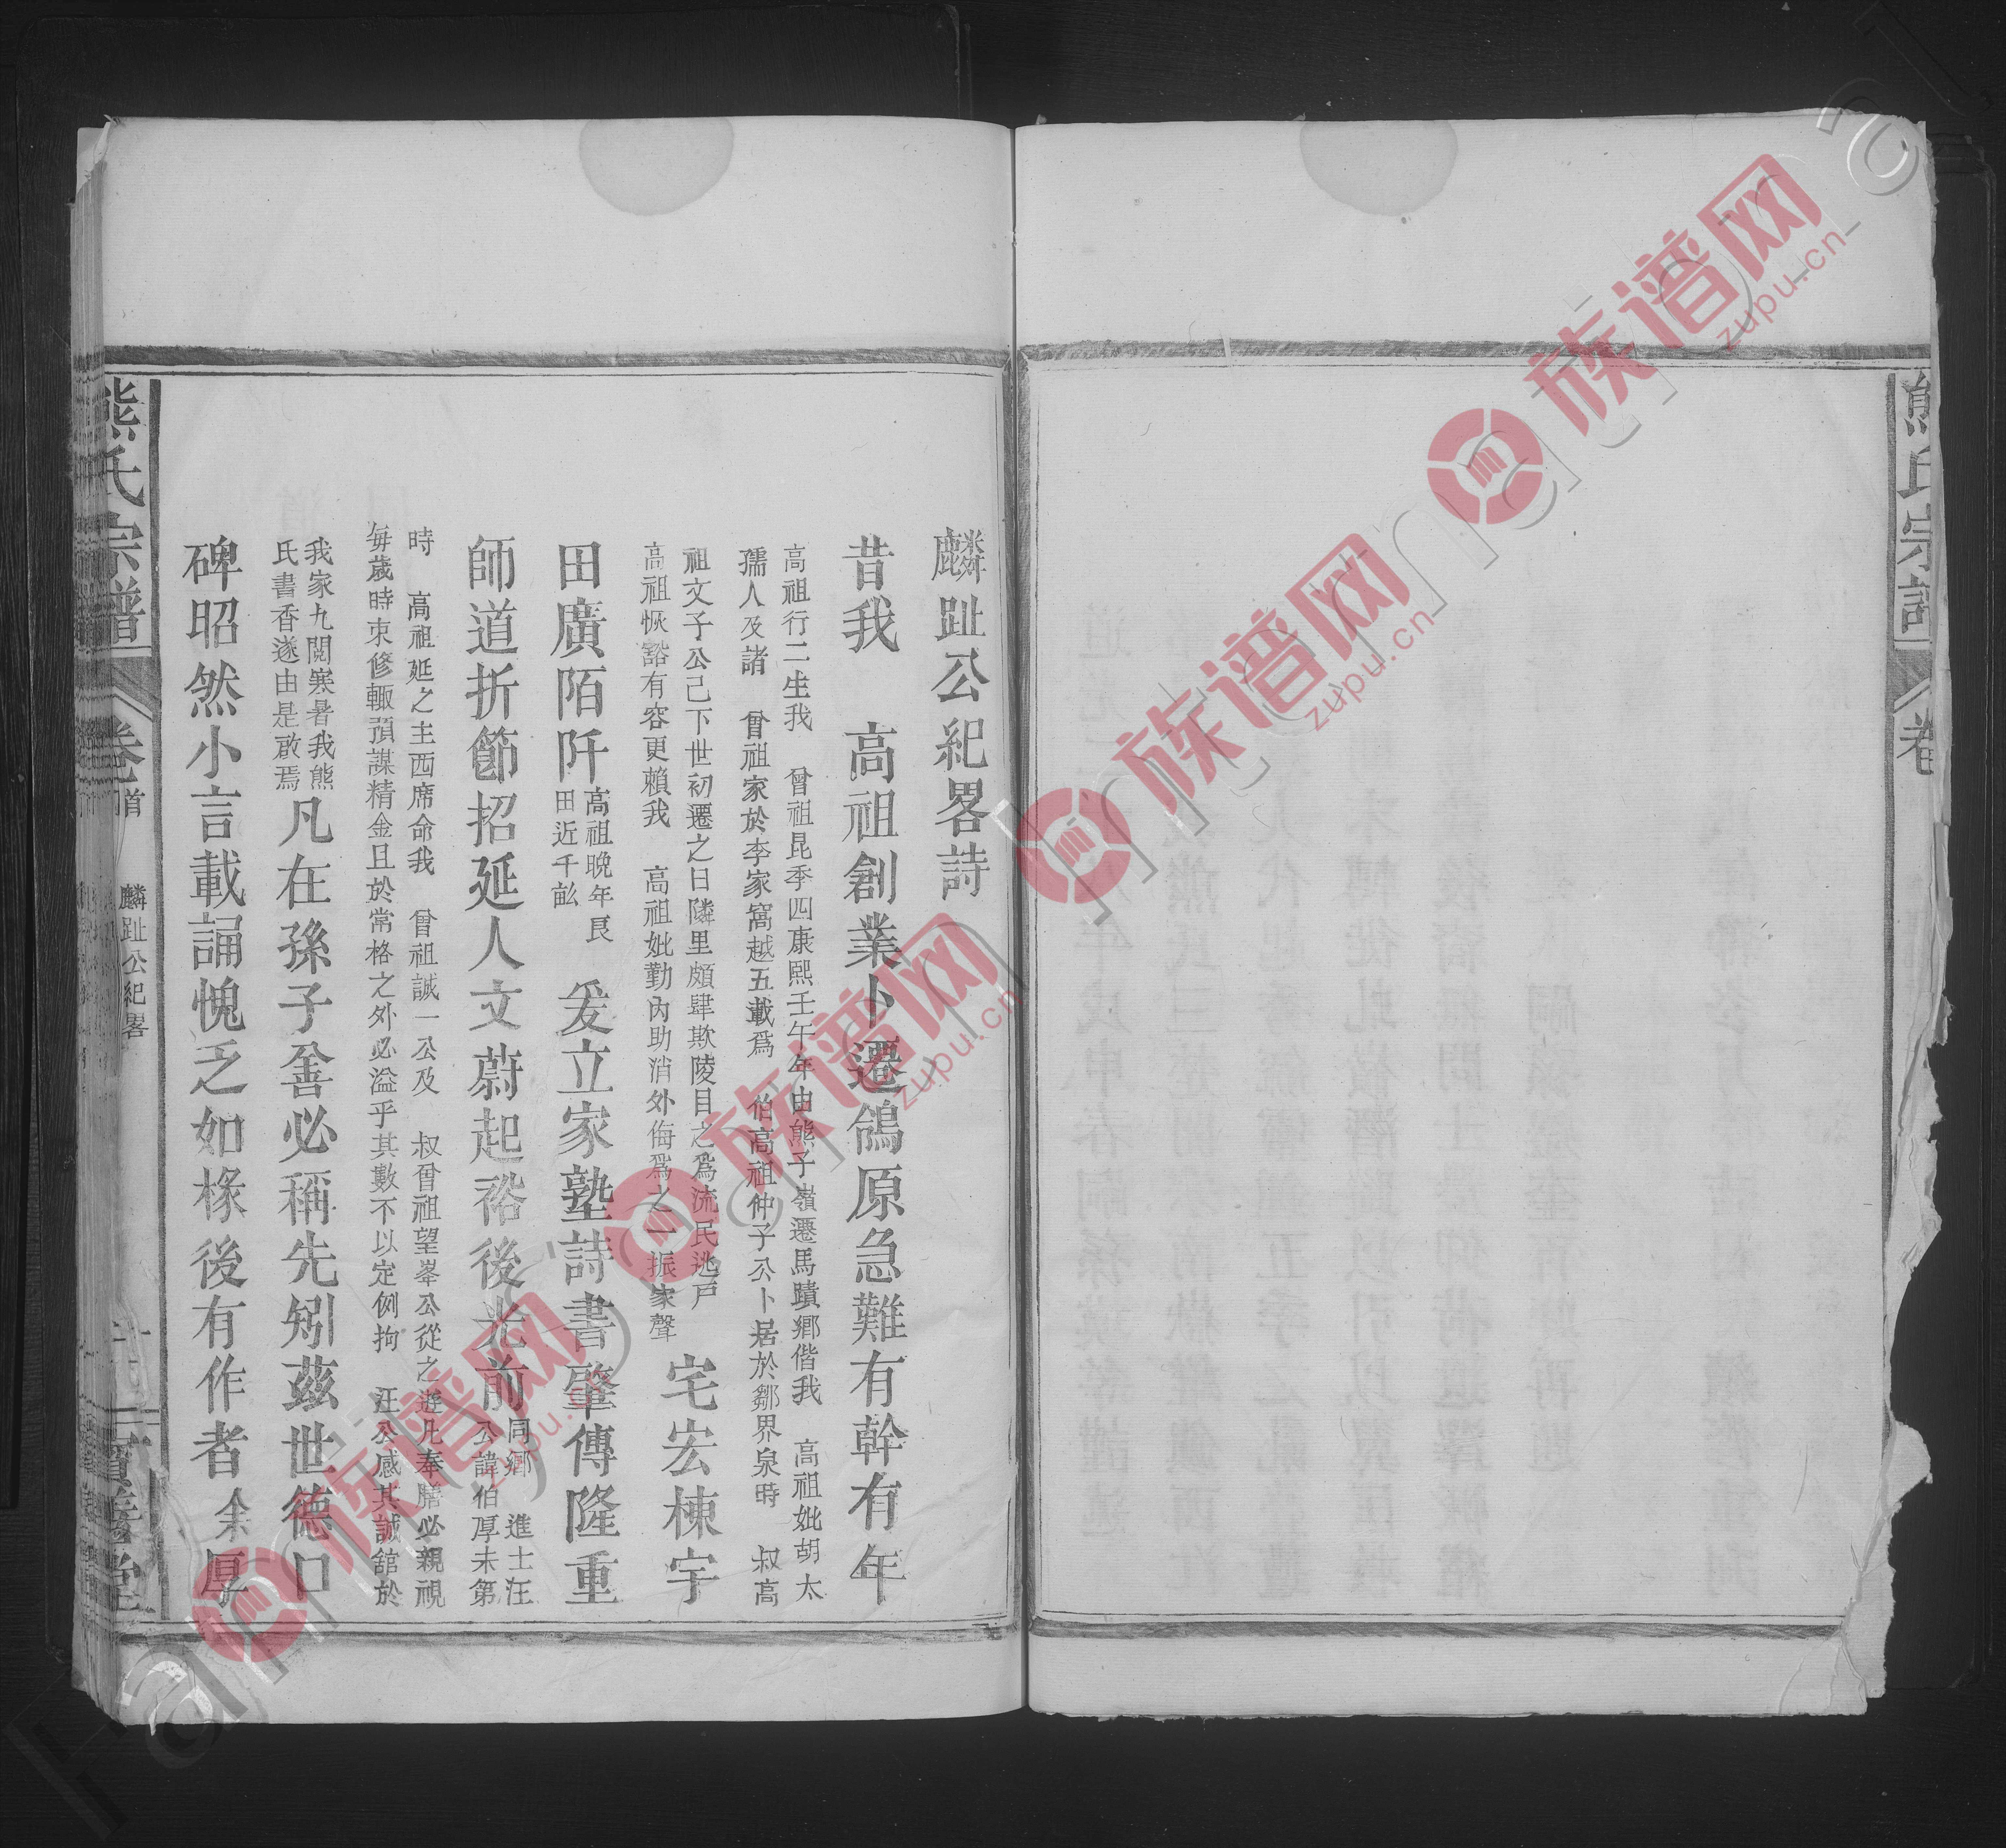 熊氏宗譜
卷
麟趾公紀畧詩
昔我　高祖創業卜遷鴿原急難有年幹有年
高祖行二生我　曾祖昆季四康熙壬午年由熊子嶺遷馬蹟鄉偕我　高祖妣胡太
孺人及諸　曾祖家於李家窩越五載爲　伯高祖仲子公卜居於鄒界泉時　叔高
祖文子公己下世初遷之日隣里頗肆欺陵目之爲流民逃戸
高祖恢豁有容更賴我　高祖妣勤內助消外侮爲之一振家聲
宅宏棟宇
田廣陌阡
高祖晚年良
田近千畝
爰立家塾詩書肇傳隆重
師道折節招延人文蔚起裕後光前
同鄉　進士汪
公諱伯厚未第
時　高祖延之主西席命我　曾祖誠一公及　叔曾祖望峯公從之遊凡奉膳必親視
每歲時束修輙預謀精金且於常格之外必溢乎其數不以定例拘　汪公感其誠舘於
我家九閱寒暑我熊
氏書香遂由是啟焉
凡在孫子善必稱先矧茲世德口
碑昭然小言載誦愧乏如椽後有作者余厚
熊氏宗譜
卷首
麟趾公紀畧
寶善堂